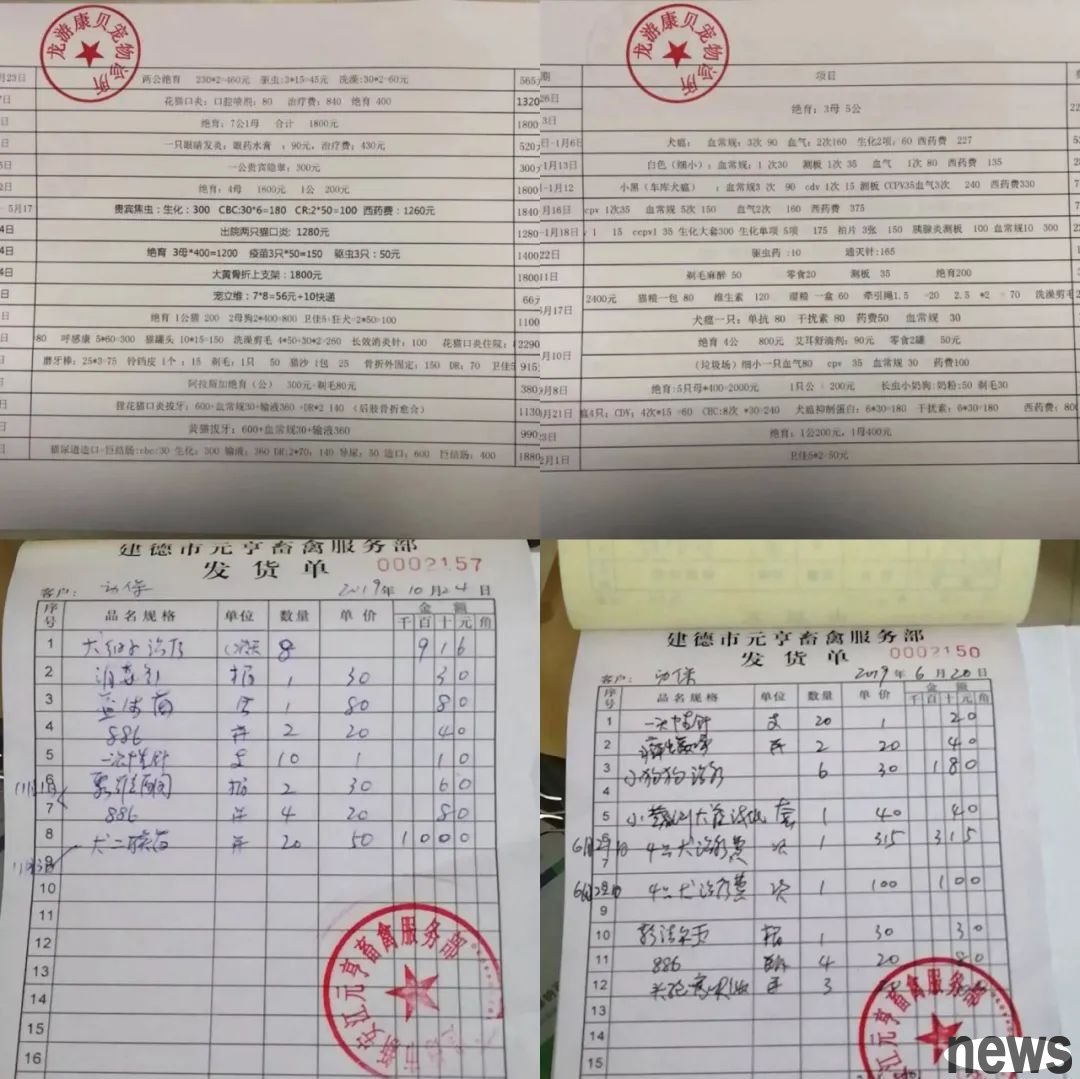 龙游康贝宠物诊所
月23日 两公绝育 230*2=460元 驱虫:3*15=45元 洗澡:30*2=60元 565元
花猫口炎:口腔喷剂:80 治疗费:840 绝育 400 1320
绝育:7公1母 合计 1800元 1800
一只眼睛发炎:眼药水膏 :90元,治疗费:430元 520元
一公贵宾隐睾:300元 300元
绝育:4母 1600元 1公 200元 1800
5月17 贵宾焦虫:生化:300 CBC:30*6=180 CR:2*50=100 西药费:1260元 1840
出院两只猫口炎:1280元 1280
绝育 3母*400=1200 疫苗3只*50=150 驱虫3只:50元 1400
大黄骨折上支架:1800元 1800
宠立维:7*8=56元+10快递 66元
绝育 1公猫 200 2母狗2*400=800 卫佳5+狂犬=2*50=100 1100
80 呼感康 5*60=300 猫罐头 10*15=150 洗澡剪毛 4*50+30*2=260 长效消炎针:100 花猫口炎住院:1 2290
磨牙棒:25*3=75 铃铛皮 1个 :15 剃毛:1只 50 猫沙 1包 25 骨折外固定:150 DR:70 卫佳5 915
阿拉斯加绝育(公) 300元+剃毛80元 380
狸花猫口炎拔牙:600+血常规30+输液360 +DR*2 140 (后肢骨折愈合) 1130
黄猫拔牙:600+血常规30+输液360 990
猫尿道造口+巨结肠:cbc:30 生化:300 输液:360 DR:2*70:140 导尿:50 造口:600 巨结肠:400 1880
龙游康贝宠物诊所
期 项目
26日
3日 绝育:3母 5公
日-1月6日 犬瘟: 血常规:3次 90 血气:2次160 生化2项:60 西药费 227
1月13日 白色(细小):血常规:1 次30 测板 1次 35 血气 1次 80 西药费 135
1-1月12 小黑(车库犬瘟) :血常规3 次 90 cdv 1次 15 测板 CCPV35血气3次 240 西药费330
月16日 cpv 1次35 血常规 5次 150 血气2次 160 西药费 375
-1月18日 1 15 ccpv1 35 生化大套300 生化单项 5项 175 拍片 3张 150 胰腺炎测板 100 血常规10 300
22日 驱虫药 :10 通灭针:165
剃毛麻醉 50 零食20 测板 35 绝育200
5月17日 2400元 猫粮一包 80 维生素 120 湿粮 一盒 60 牵引绳1.5 =20 2.5 *2 = 70 洗澡剪毛
犬瘟一只:单抗 80 干扰素 80 药费50 血常规 30
月10日 绝育 4公 800元 艾耳舒滴剂:90元 零食2罐 50元
(垃圾场)细小一只血气80 cpv 35 血常规 30 药费100
9月8日 绝育:5只母*400=2000元 1只公 :200元 长虫小奶狗:奶粉:50 剃毛30
月21日 瘟4只:CDV:4次*15 =60 CBC:8次 *30=240 犬瘟抑制蛋白:6*30=180 干扰素:6*30=180 西药费:800
23日 绝育:1公200元,1母400元
2月1日 卫佳5*2=50元
建德市元亨畜禽服务部
发货单 0002157
客户: 动保 2019年10月24日
序号 品名规格 单位 数量 单价 金额
千 百 十 元 角
1 8 916
2 1 30 30
3 1 80 80
4 886 2 20 40
5 一次性针 支 10 1 10
6 2 30 60
7 886 4 20 80
8 犬二联苗 20 50 1000
9
10
11
12
13
14
15
16
元亨畜禽服务部
建德市元亨畜禽服务部
发货单 0002150
客户: 动保 2019年6月20日
序号 品名规格 单位 数量 单价 金额
千 百 十 元 角
1 一次性针 支 20 1 20
2 2 20 40
3 小狗狗治疗 6 30 180
5 1 40 40
6 4只犬治疗费 次 1 315 315
7
4只犬治疗费 次 1 100 100
9
10 1 30 30
11 886 4 20 80
12 3
13
14
15
元亨畜禽服务部
news